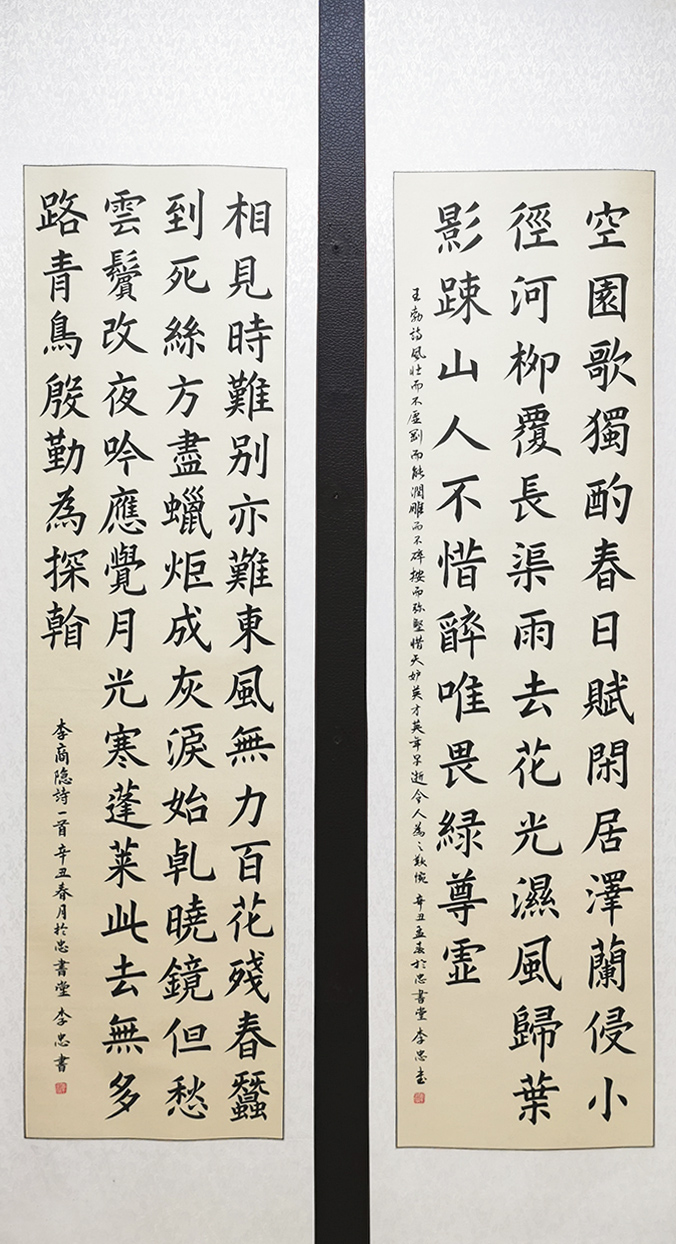 空園歌獨酌春日賦閑居澤蘭侵小
徑河柳覆長渠雨去花光濕風歸葉
影踈山人不惜醉唯畏緑尊虛
王勃詩風壯而不虛剛而能潤雕而不碎按而弥堅惜天妒英才英年早逝令人為之歎惋辛丑孟春於忠書堂李忠書
相見時難别亦難東風無力百花殘春蠶
到死絲方盡蠟炬成灰淚始乹曉鏡但愁
雲鬢改夜吟應覺月光寒蓬萊此去無多
路青鳥殷勤為探看
李商隐詩一首辛丑春月於忠書堂李忠書